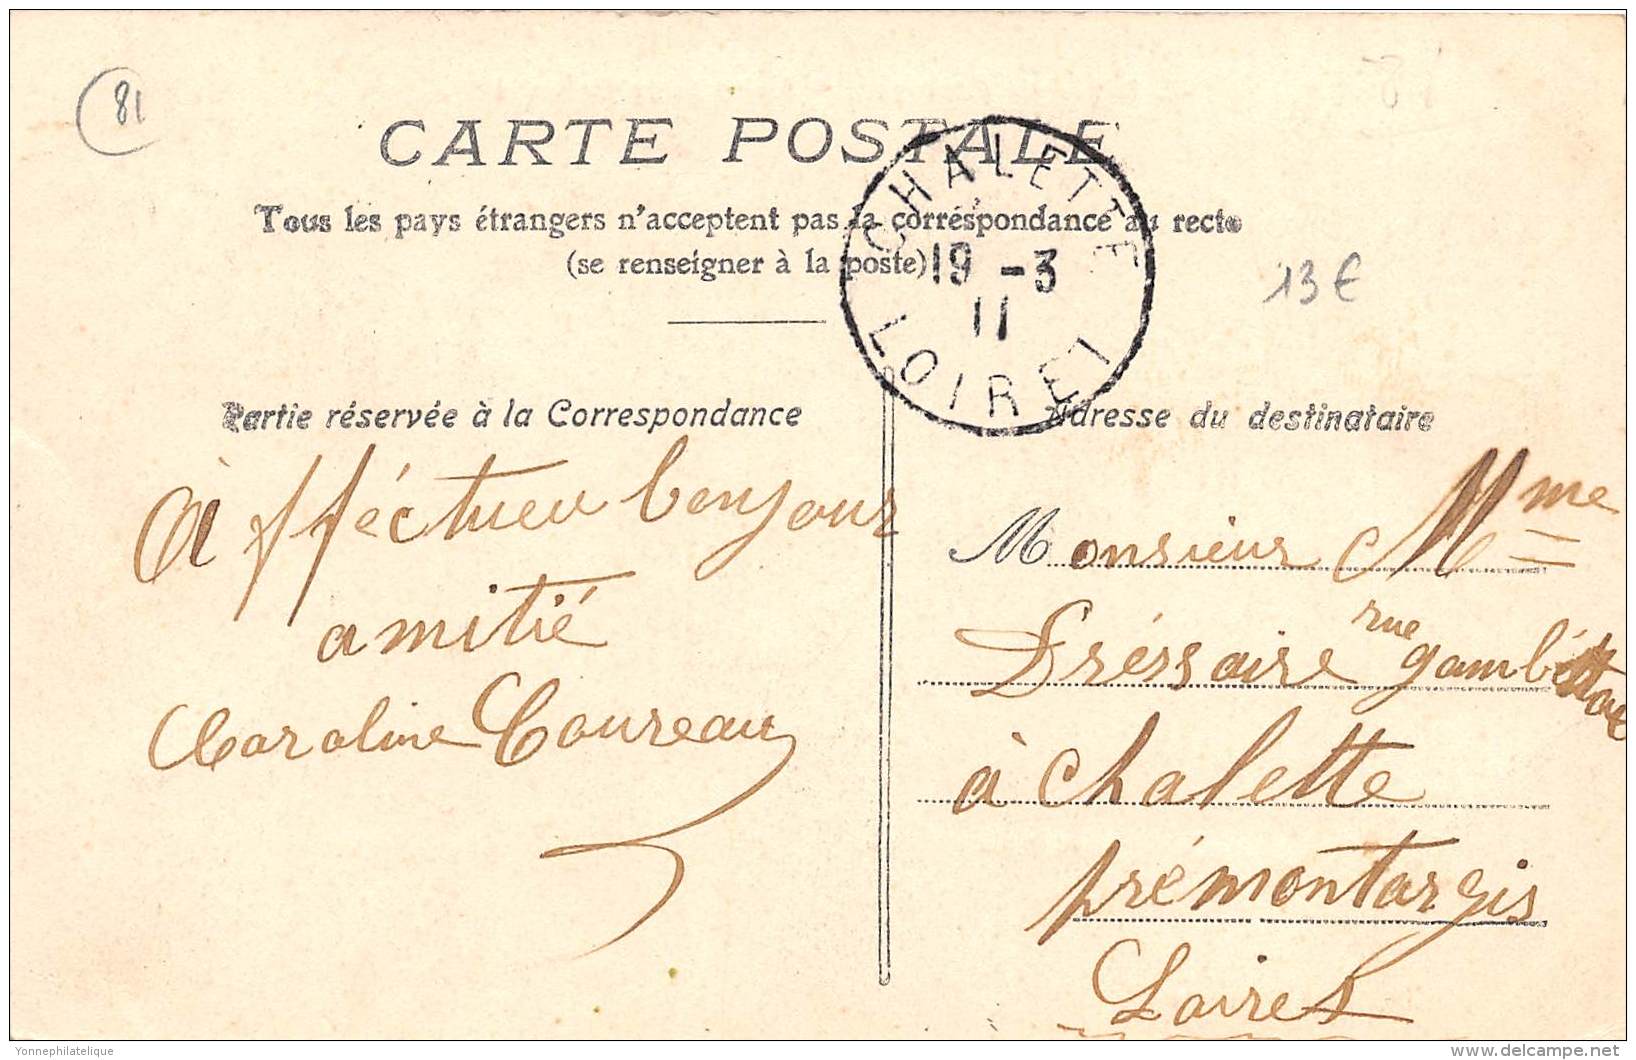 81
CARTE POSTALE
Tous les pays étrangers n'acceptent pas la correspondance au recto
(se renseigner à la poste)
CHALETTE
19 -3
11
LOIRET
13€
Partie réservée à la Correspondance
Afféctueu bonjour
amitié
Caroline Coureau
Adresse du destinataire
Monsieur Mme
Dréssaire rue gambétta
à chalette
prémontargis
Loiret
Yonnephilatelique
delcampe.net